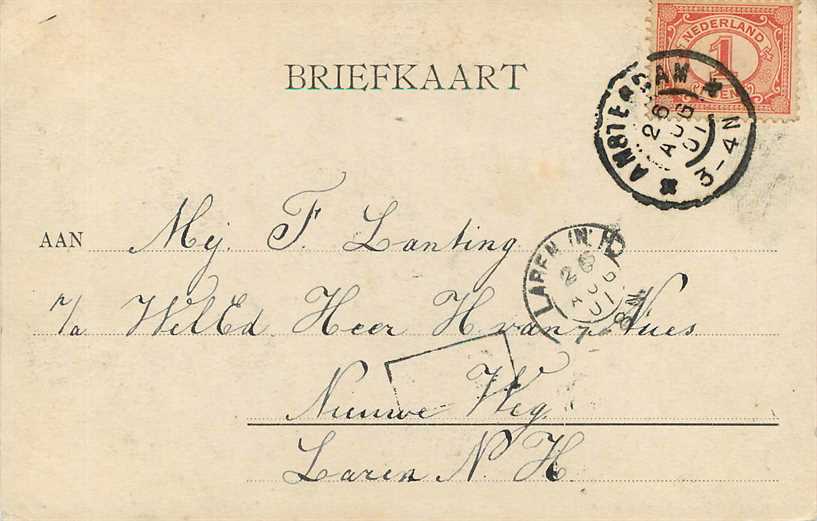 NEDERLAND
1
CENT
BRIEFKAART
AMSTERDAM
26
AUG
01
3-4N
AAN Mej. F. Lanting
LAREN (N.H)
26
AUG
01
7-8N.
p/a WelEd Heer H van Nues
Nieuwe Weg
Laren N. H.